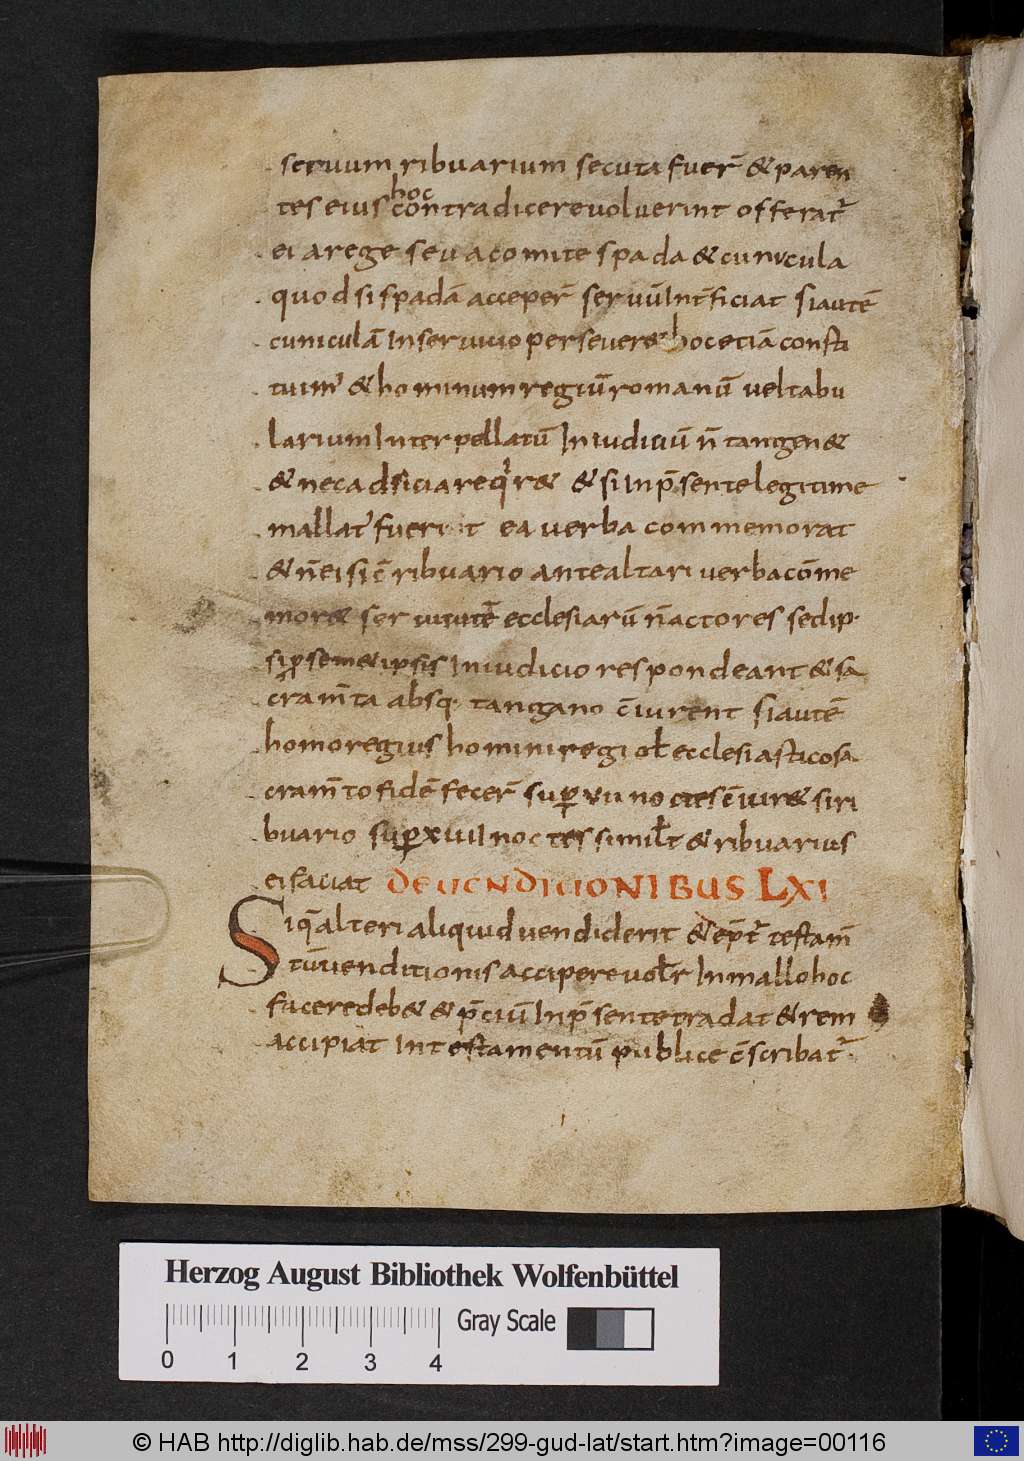 seruum ribuarium secuta fuer̄ & paren
tes eius hoc contradicere uoluerint offerat᷑
ei a rege seu a comite spada & cunicula
quod si spadā acceper̄ seruū Int̄ficiat si autē
cuniculā In seruicio perseuer& hoc etiā consti
tuim᷒ & hominum regiū romanū uel tabu
larium Interpellatū In iudiciū n̄ tangen&
& nec ad sicia req̇r& & si In p̄sente legitime
mallat᷒ fuerit ea uerba commemorat
& n̄ ei si c̄ ribuario ante altari uerba cōme
mor& seruiutē ecclesiarū n̄ actores sed ip
si p̱ sem& ipsis In iudicio respondeant & sa
cram̄ta absq· tangano c̄iurent si autē
homo regius homini regi ół ecclesiastico sa
cram̄to fidē fecer̄ sup̱ VII noctes c̄iur& si ri
buario sup̱ XIIII noctes simił & ribuarius
ei faciat DE UENDICIONIBUS LXI
Si q̄ alteri aliquid uendiderit & ep̄t᷑ testam̄
tū uenditionis accipere uoł̄r In mallo hoc
facere deb& & p̄ciū In p̄sente tradat & rem
accipiat Int estamentū publice c̄scribat᷑
Herzog August Bibliothek Wolfenbüttel
Gray Scale
0 1 2 3 4
© HAB http://diglib.hab.de/mss/299-gud-lat/start.htm?image=00116